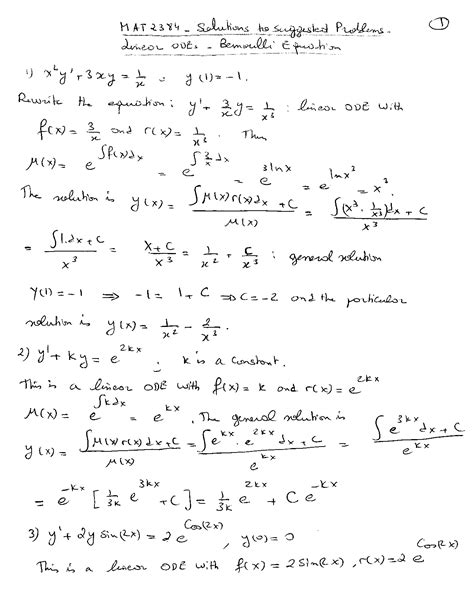 MAT2384 - Solutions to suggested Problems. ①
Linear ODEs - Bernoulli Equation
1) x²y' + 3xy = 1/x ; y(1) = -1.
Rewrite the equation: y' + 3/x y = 1/x³ : linear ODE with
f(x) = 3/x and r(x) = 1/x³. Thus
μ(x) = e^{∫f(x)dx} = e^{∫3/x dx} = e^{3lnx} = e^{lnx³} = x³.
The solution is y(x) = (∫μ(x)r(x)dx + C)/μ(x) = (∫(x³·1/x³)dx + C)/x³
= (∫1.dx + C)/x³ = (x+C)/x³ = 1/x² + C/x³ : general solution
y(1) = -1 ⇒ -1 = 1 + C ⇒ C = -2 and the particular
solution is y(x) = 1/x² - 2/x³.
2) y' + ky = e^{2kx} ; k is a constant.
This is a linear ODE with f(x) = k and r(x) = e^{2kx}
μ(x) = e^{∫kdx} = e^{kx}. The general solution is
y(x) = (∫μ(x)r(x)dx + C)/μ(x) = (∫e^{kx}·e^{2kx}dx + C)/e^{kx} = (∫e^{3kx}dx + C)/e^{kx}
= e^{-kx}[1/3k e^{3kx} + C] = 1/3k e^{2kx} + Ce^{-kx}
3) y' + 2y sin(2x) = 2e^{cos(2x)}, y(0) = 0
This is a linear ODE with f(x) = 2sin(2x), r(x) = 2e^{cos(2x)}